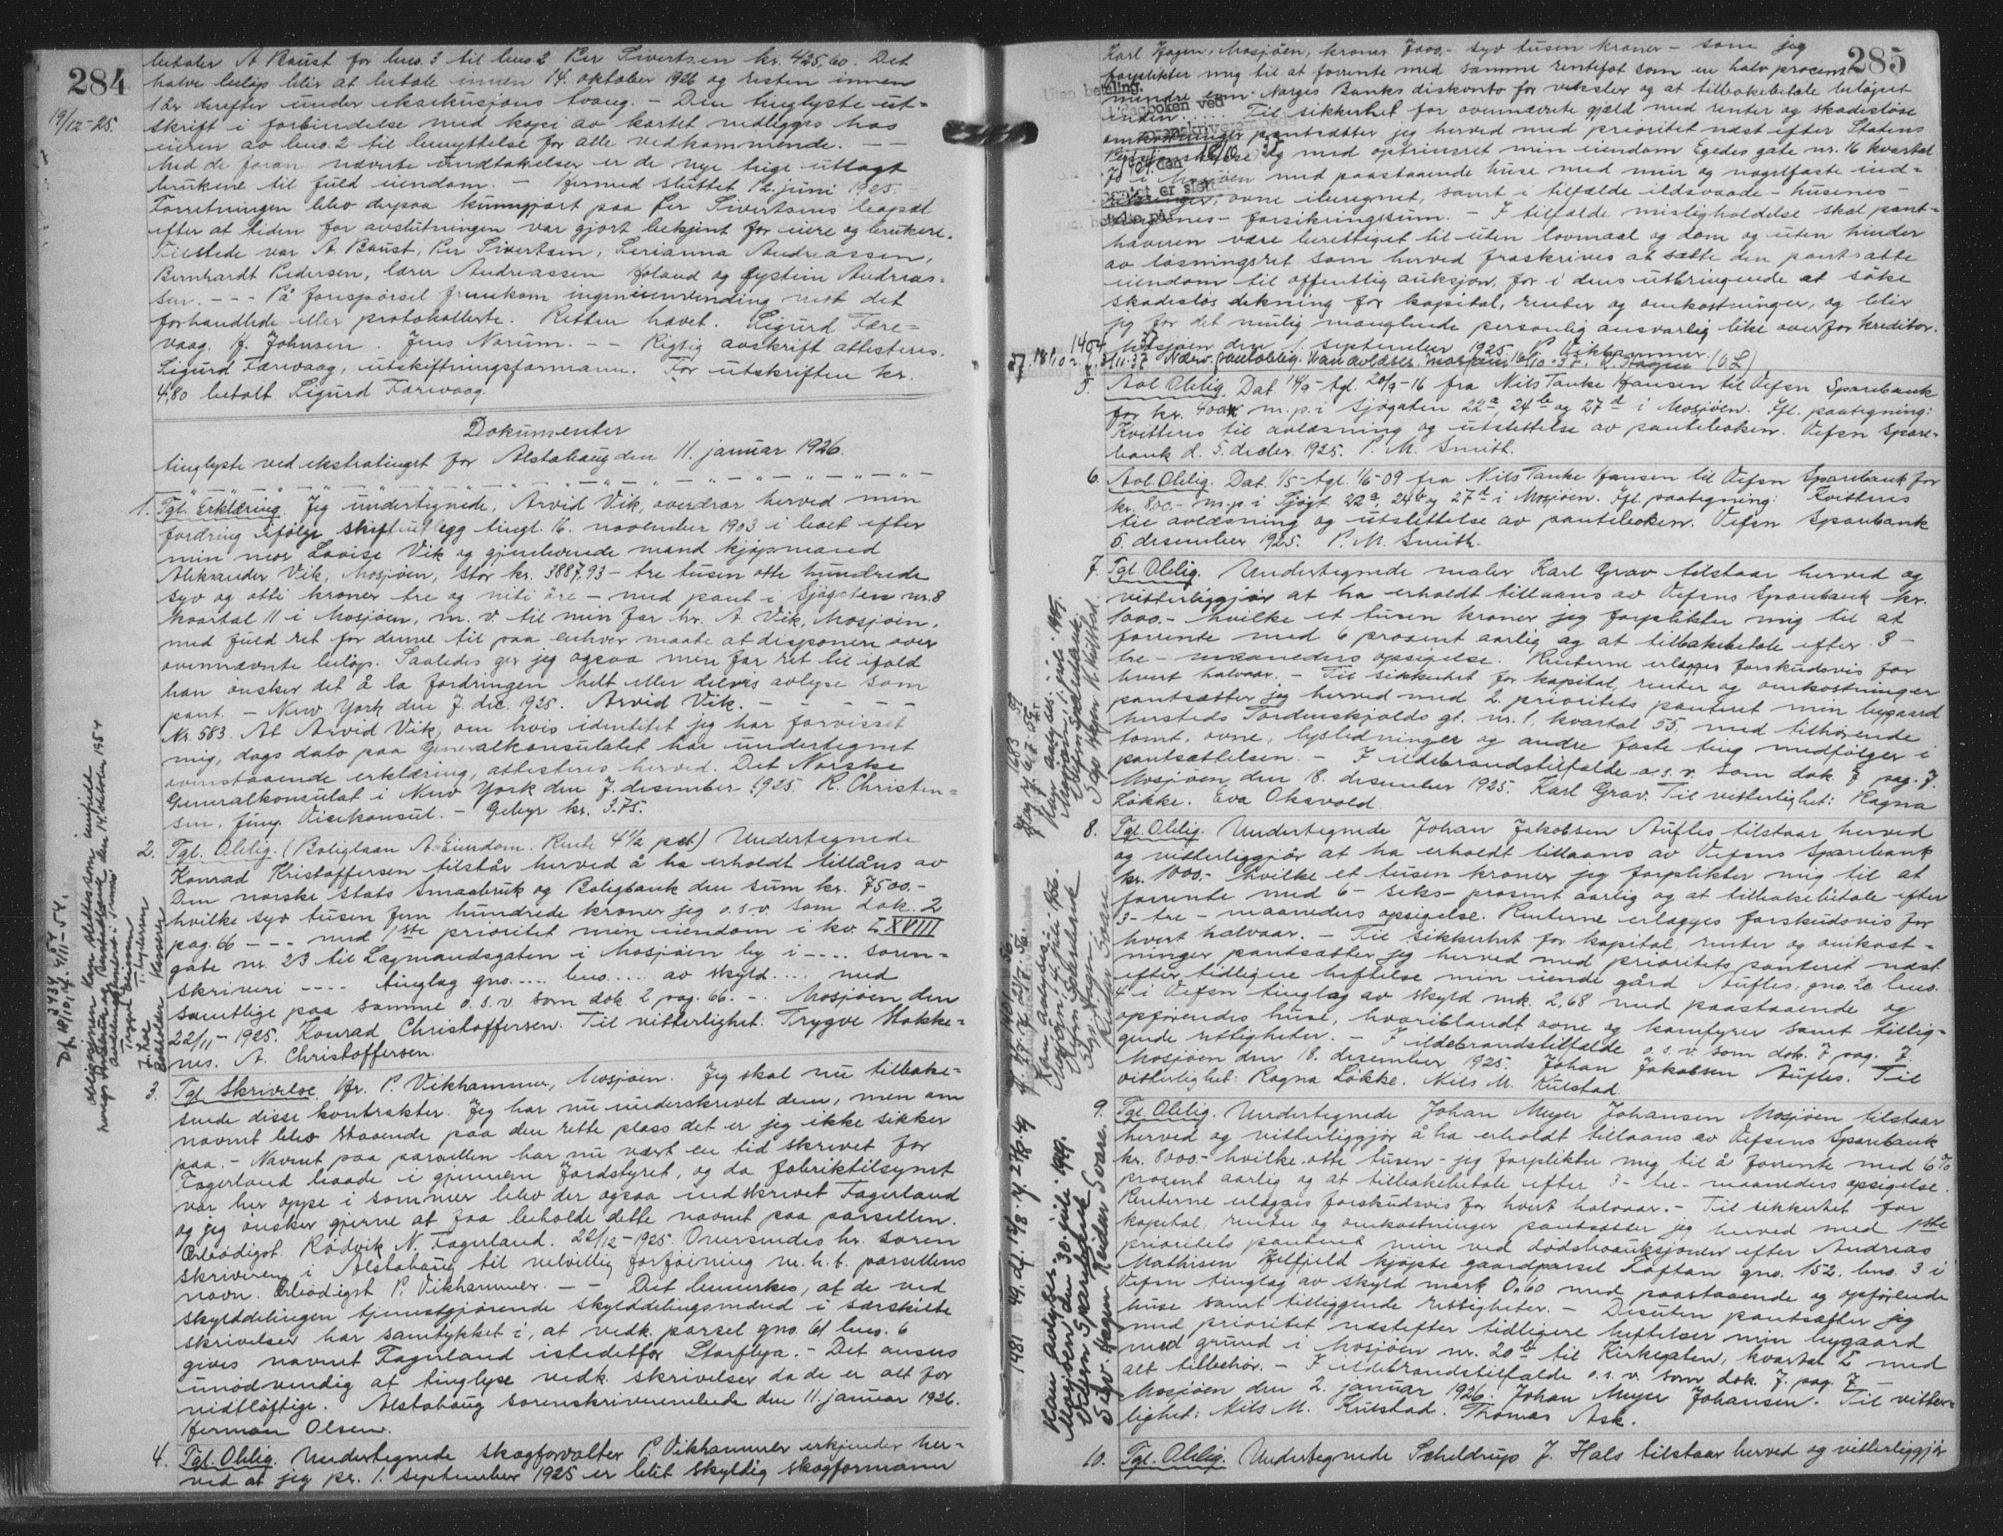 284
19/12-25.
betaler A Baust for bno. 3 til bno 2 Per Sivertsen kr. 425,60. Det
halve beløp blir at betale innen 14. oktober 1926 og resten innen
1 år derefter under eksekusjons tvang. - Den tinglyste ut-
skrift i forbindelse med kopi av kartet vedlegges hos
eieren av bno. 2 til benyttelse for alle vedkommende. - -
Med de foran nævnte undtakelser er de nye teige utlagt
brukene til fuld eiendom. - Hermed sluttet 12. juni 1925.
Forretningen blev derpaa kunngjort paa Per Sivertsens bopæl
efter at tiden for avslutningen var gjort bekjent for eiere og brukere.
Tilstede var A. Baust, Per Sivertsen, Serianna Andreassen,
Bernhardt Pedersen, lærer Andreassen Holand og Øystein Andreas-
sen. - - - På forespørsel fremkom ingen innvending mot det
forhandlede eller protokollerte. Retten hævet. Sigurd Fære-
vaag. H. Johnsen. Jens Norum. - - Rigtig avskrift attesteres.
Sigurd Færevaag, utskiftningsformann. For utskriften kr.
4,80 betalt. Sigurd Færevaag.
Dokumenter
tinglyste ved ekstratinget for Alstahaug den 11. januar 1926.
1. Tgl. Erklæring. Jeg undertegnede, Arvid Vik, overdrar herved min
fordring ifølge skifteutlegg tingl. 16. november 1903 i boet efter
min mor Lovise Vik og gjenlevende mand kjøpmand
Aleksander Vik, Mosjøen, stor kr. 3887,93 - tre tusen otte hundrede
syv og otti kroner tre og niti øre - med pant i Sjøgaten nr. 8
kvartal 11 i Mosjøen, m. v. til min far hr. A. Vik, Mosjøen,
med fuld ret for denne til paa enhver maate at disponere over
ovennævnte beløp. Saaledes gir jeg ogsaa min far ret til ifald
han ønsker det å la fordringen helt eller delvis avlyse som
pant. - New York den 7. dec. 1925. Arvid Vik. - - - -
Nr. 583. At Arvid Vik, om hvis identitet jeg har forvisset
mig, dags dato paa Generalkonsulatet har undertegnet
ovenstaaende erklæring, attesteres herved. Det Norske
Generalkonsulat i New York den 7. desember 1925. R. Christen-
sen. fung. Visekonsul. - Gebyr kr. 3.75.
2. Tgl. Oblig. (Boliglaan A-Eiendom. Rente 4 1/2 pct) Undertegnede
Konrad Kristoffersen tilstår herved å ha erholdt tillåns av
Den norske stats Småbruk og Boligbank den sum kr. 7500.-
hvilke syv tusen fem hundrede kroner jeg o.s.v. som dok. 2
pag. 66 - - - med 1ste prioritet min eiendom i kv. L XVIII
gate nr. 23 til Lagmandsgaten i Mosjøen by i - . . . . soren-
skriveri - - - - tinglag gno. . . . . bno. . . . . av skyld . . . . med
samtlige paa samme o.s.v. som dok. 2 pag. 66. - - Mosjøen, den
22/11 - 1925. Konrad Christoffersen. Til vitterlighet: Trygve Stokke-
nes. A. Christoffersen.
3. Tgl. Skrivelse. Hr. P. Vikhammer, Mosjøen. Jeg skal nu tilbake-
sende disse kontrakter. Jeg har nu underskrevet dem, men om
navnet blev staaende paa den rette plass det er jeg ikke sikker
paa. - Navnet paa parsellen har nu vært en tid skrevet for
Fagerland baade i gjennem Jordstyret, og da fabriktilsynet
var her oppe i sommer blev der ogsaa indskrevet Fagerland
og jeg ønsker gjerne at faa beholde dette navnet paa parsellen.
Ærbødigst. Rødvik N. Fagerland. 22/12-1925. Oversendes hr. soren
skriveren i Alstahaug til velvillig forføining m. h. t. parsellens
navn. Ærbødigst P. Vikhammer. - - Det bemerkes, at de ved
skylddelingen tjenestgjørende skylddelingsmænd i særskilte
skrivelser har samtykket i, at vedk. parsel gno. 61 bno. 6
gives navnet Fagerland istedetfor Storflya. - Det ansees
unødvendig at tinglyse vedk. skrivelser da de er alt for
vidtløftige. Alstahaug sorenskriverembede den 11. januar 1926.
Herman Olsen.
4. Tgl. Oblig. Undertegnede skogforvalter P. Vikhammer erkjender her-
ved at jeg pr. 1. september 1925 er blit skyldig skogformann
Obligasjonen kan slettes som innfridd
Norges Småbruk og Boligbank den 14 oktober 1954
2434 54
Df. 19/10, af. 4/11-54.
285
Karl Hagen, Mosjøen, kroner 7000,- syv tusen kroner - som jeg
forplikter mig til at forrente med samme rentefot som en halv procent
mindre enn Norges Banks diskonto for veksler og at tilbakebetale beløpet
inden . . . . . . Til sikkerhet for ovennævnte gjæld med renter og skadesløse
omkostninger pantsætter jeg herved med prioritet næst efter Statens
og med optrinsret min eiendom Egedes gate nr. 16 kvartal
i Mosjøen med paastaaende huse med mur og nagelfaste ind-
retninger, ovne iberegnet, samt i tilfælde ildsvaade - husenes -
forsikringssum. - I tilfælde misligholdelse skal pant-
haveren være berettiget til uten lovmaal og dom og uten hinder
av løsningsret som herved fraskrives at sætte den pantsatte
eiendom til offentlig auksjon, for i dens utbringende at søke
skadesløs dekning for kapital, renter og omkostninger, og blir
jeg for det mulig manglende personlig ansvarlig like overfor kreditor.
Mosjøen den 1. september 1925. P. Vikhammer.
Nærv. pantoblig. kan avlæses. Mosjøen 16/10-37. K. Hagen (O.L)
5. Avl. Oblig. Dat. 14/9 - tgl. 20/9-16 fra Nils Tanke Hansen til Vefsn Sparebank
for kr. 400,- m. p. i Sjøgaten 22a, 24b og 27d i Mosjøen. Ifl. paategning:
Kvitteres til avlæsning og utslettelse av panteboken. Vefsn Spare-
bank d. 5. decbr. 1925. P. M. Smith.
6. Avl. Oblig. Dat. 1/5 - tgl. 1/6-09 fra Nils Tanke Hansen til Vefsn Sparebank for
kr. 800.- m. p. i Sjøgt. 22a, 24b og 27d i Mosjøen. Ifl. paategning: Kvitteres
til avlæsning og utslettelse av panteboken. Vefsn Sparebank
5. desember 1925. P. M. Smith.
7. Tgl. Oblig. Undertegnede maler Karl Grav tilstaar herved og
vitterliggjør at ha erholdt tillaans av Vefsns Sparebank kr.
1000.- hvilke et tusen kroner jeg forplikter mig til at
forrente med 6 prosent aarlig og at tilbakebetale efter 3-
tre - maaneders opsigelse. Renterne erlægges forskudsvis for
hvert halvaar. - Til sikkerhet for kapital, renter og omkostninger
pantsætter jeg herved med 2. prioritets panteret min bygaard
husteds Tordenskjolds gt. nr. 1, kvartal 55, med tilhørende
tomt, ovne, lysledninger og andre faste ting medfølger i
pantsættelsen. - I ildebrandstilfælde o.s.v. som dok. 7 pag. 7.
Mosjøen den 18. desember 1925. Karl Grav. Til vitterlighet: Ragna
Løkke. Eva Oksvold.
8. Tgl. Oblig. Undertegnede Johan Jakobsen Aufles tilstaar herved
og vitterliggjør at ha erholdt tillaans av Vefsns Sparebank
kr. 1000.- hvilke et tusen kroner jeg forplikter mig til at
forrente med 6- seks- prosent aarlig og at tilbakebetale efter
3- tre - maaneders opsigelse. Renterne erlægges forskudsvis for
hvert halvaar. - Til sikkerhet for kapital, renter og omkost-
ninger pantsætter jeg herved med prioritets panteret næst
efter tidligere heftelse min eiende gård Aufles, gno. 20 bno.
4 i Vefsn tinglag av skyld mk. 2,68 med paastaaende og
opførendes huse, hvoriblandt ovne og komfyrer samt tillig-
gende rettigheter. - I ildebrandstilfælde o.s.v. som dok. 7 pag. 7.
Mosjøen den 18. desember 1925. Johan Jakobsen Aufles. Til
vitterlighet: Ragna Løkke. Nils M. Kulstad.
9. Tgl. Oblig. Undertegnede Johan Meyer Johansen Mosjøen tilstaar
herved og vitterliggjør å ha erholdt tillaans av Vefsens Sparebank
kr. 8000.- hvilke otte tusen - jeg forplikter mig til å forrente med 6%
prosent aarlig og at tilbakebetale efter 3- tre- maaneders opsigelse.
Renterne erlægges forskudsvis for hvert halvaar. - Til sikkerhet for
kapital, renter og omkostninger pantsætter jeg herved med 1ste
prioritets panteret min ved dødsboauksjonen efter Andreas
Mathisen Jelfjeld kjøpte gaardparsel Toftan gno. 152. bno. 3 i
Vefsn tinglag av skyld mark 0.60 med paastaaende og opførende
huse samt tilliggende rettigheter. - Desuten pantsætter jeg
med prioritet næstefter tidligere heftelser min bygaard
med grund i Mosjøen nr. 20b til Kirkegaten, kvartal I med
alt tilbehør. - I ildebrandstilfælde o.s.v. som dok. 7. pag. 7 -
Mosjøen den 2. januar 1926. Johan Meyer Johansen. Til vitter-
lighet: Nils M. Kulstad. Thomas Ask.
10. Tgl. Oblig. Undertegnede Scheldrup J. Hals tilstaar herved og vitterliggjør
Kan avlyses.
Mosjøen, den 30. juli 1949.
Vefsn Sparebank